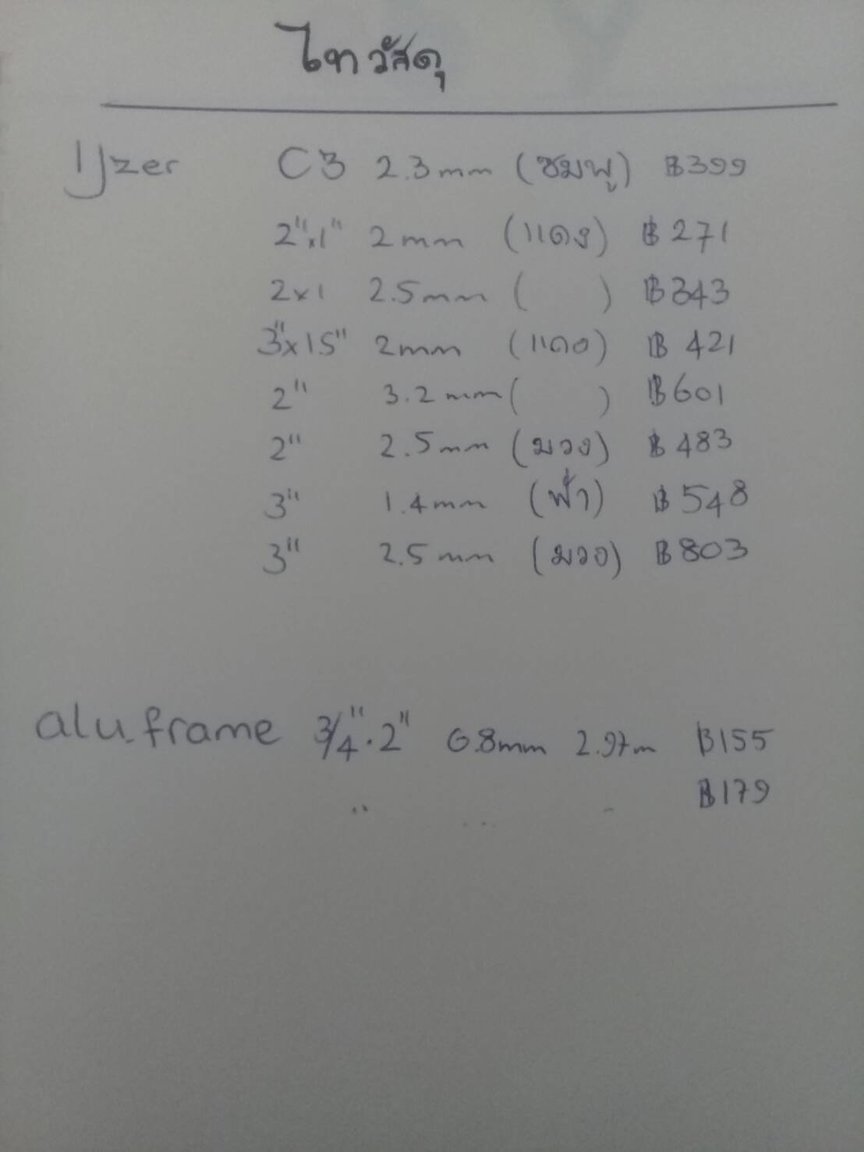 ไทวัสดุ
IJzer C3 2.3mm (ชมพู) ฿399
2"x1" 2mm (แดง) ฿271
2x1 2.5mm ( ) ฿343
3"x15" 2mm (แดง) ฿421
2" 3.2mm ( ) ฿601
2" 2.5mm (มวง) ฿483
3" 1.4mm (ฟ้า) ฿548
3" 2.5mm (มวง) ฿803
alu.frame 3/4"·2" 0.8mm 2.97m ฿155
" ฿179